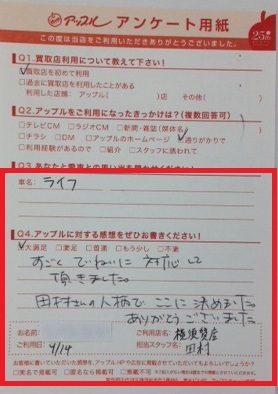 アップル アンケート用紙
25th
この度は当店をご利用いただきありがとうございました。
Q1.買取店利用について教えて下さい!
☑買取店を初めて利用
□過去に買取店を利用したことがある
利用した店舗: アップル( )店 その他( )
Q2.アップルをご利用になったきっかけは?(複数回答可)
□テレビCM □ラジオCM □新聞・雑誌(媒体名 )
□チラシ □DM □アップルのホームページ ☑通りがかりで
□利用経験があるので □紹介 □スタッフに誘われて
車名: ライフ
Q4.アップルに対する感想をぜひお書きください!
☑大満足 □満足 □普通 □もう少し □不楽
すごくていねいに対応して
頂きました。
田村さんの人柄でここに決めました。
ありがとうございました
お名前: ご利用店名: 横須賀店
ご利用日: 9/14 担当スタッフ名: 田村
お客様に書いていただいた感想を、アップルHPや広告に掲載させていただいてもよろしいでしょうか?
□実名で掲載可 □匿名なら掲載可 □掲載不可